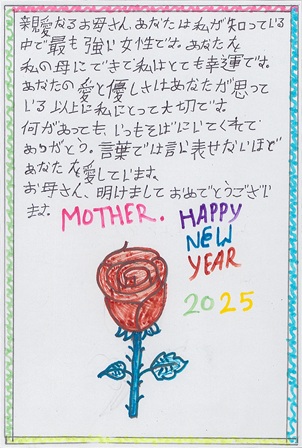 親愛なるお母さん、あなたは私が知っている
中で最も強い女性です。あなたを
私の母にできて私はとても幸運です。
あなたの愛と優しさはあなたが思って
いる以上に私にとって大切です。
何があっても、いつもそばにいてくれて
ありがとう。言葉では言い表せないほど
あなたを愛しています。
お母さん、明けましておめでとうござい
ます。 MOTHER. HAPPY
NEW
YEAR
2025